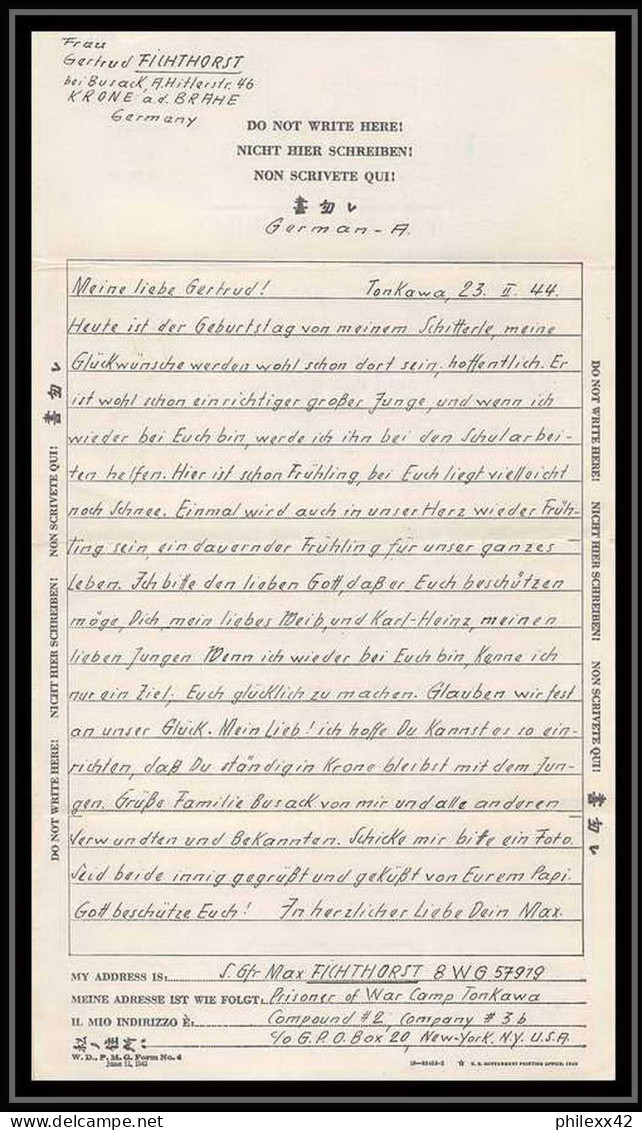 Frau
Gertrud FICHTHORST
bei Busack, A.Hitlerstr. 46
KRONE a.d. BRAHE
Germany
DO NOT WRITE HERE!
NICHT HIER SCHREIBEN!
NON SCRIVETE QUI!
書勿レ
German - A.
Meine liebe Gertrud! Tonkawa, 23. II. 44.
Heute ist der Geburtstag von meinem Schitterle, meine
Glückwünsche werden wohl schon dort sein, hoffentlich. Er
ist wohl schon ein richtiger großer Junge, und wenn ich
wieder bei Euch bin, werde ich ihn bei den Schularbei-
ten helfen. Hier ist schon Frühling, bei Euch liegt vielleicht
noch Schnee. Einmal wird auch in unser Herz wieder Früh-
ling sein, ein dauernder Frühling für unser ganzes
Leben. Ich bitte den lieben Gott, daß er Euch beschützen
möge, Dich, mein liebes Weib, und Karl-Heinz, meinen
lieben Jungen Wenn ich wieder bei Euch bin, Kenne ich
nur ein Ziel, Euch glücklich zu machen. Glauben wir fest
an unser Glück. Mein Lieb! ich hoffe Du Kannst es so ein-
richten, daß Du ständig in Krone bleibst mit dem Jun-
gen. Grüße Familie Busack von mir und alle anderen
Verwandten und Bekannten. Schicke mir bitte ein Foto.
Seid beide innig gegrüßt und geküßt von Eurem Papi.
Gott beschütze Euch! In herzlicher Liebe Dein Max.
DO NOT WRITE HERE! NICHT HIER SCHREIBEN! NON SCRIVETE QUI! 書勿レ
DO NOT WRITE HERE! NICHT HIER SCHREIBEN! NON SCRIVETE QUI! 書勿レ
MY ADDRESS IS: S. Gfr Max FICHTHORST 8 WG 57919
MEINE ADRESSE IST WIE FOLGT: Prisoner of War Camp Tonkawa
IL MIO INDIRIZZO È: Compound #2, Company #3b
私ノ住所: c/o G.P.O. Box 20, New-York, N.Y. U.S.A.
W. D., P. M. G. Form No. 4
June 11, 1943
☆ U. S. GOVERNMENT PRINTING OFFICE: 1943
delcampe.net
philexx42